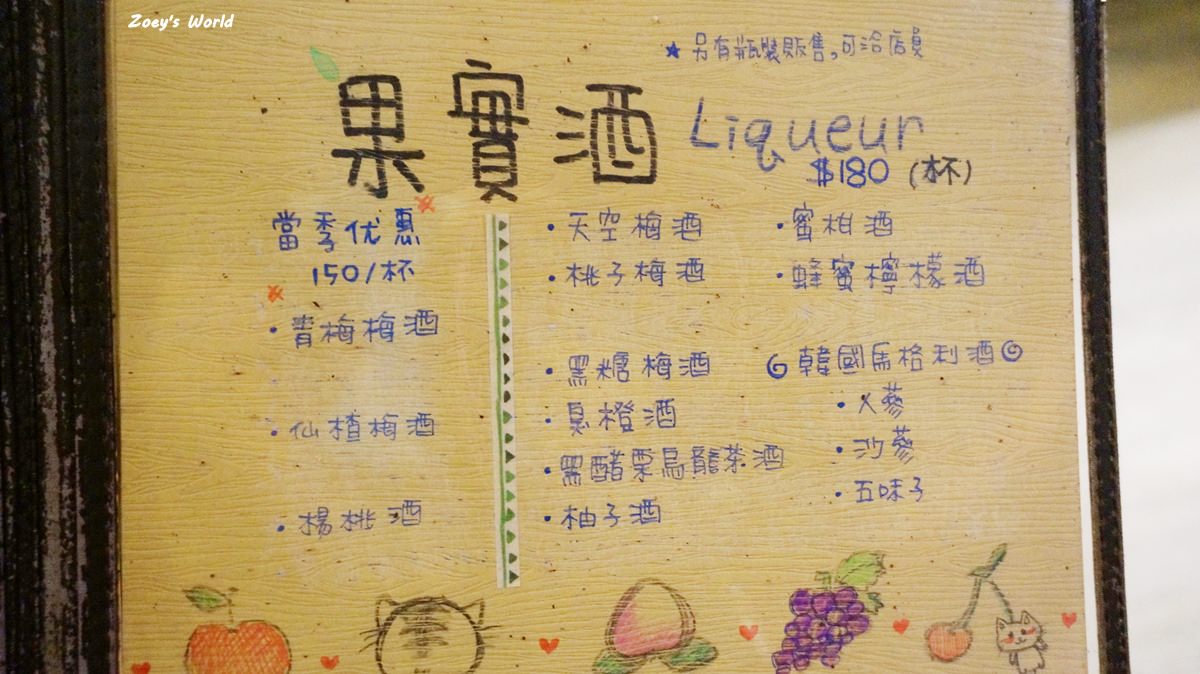 Zoey's World
★另有瓶裝販售,可洽店員
果實酒 Liqueur
$180 (杯)
當季优惠
150/杯
·青梅梅酒
·仙楂梅酒
·楊桃酒
·天空梅酒
·桃子梅酒
·黑糖梅酒
·臭橙酒
·黑醋栗烏龍茶酒
·柚子酒
·蜜柑酒
·蜂蜜檸檬酒
韓國馬格利酒
·人蔘
·沙蔘
·五味子